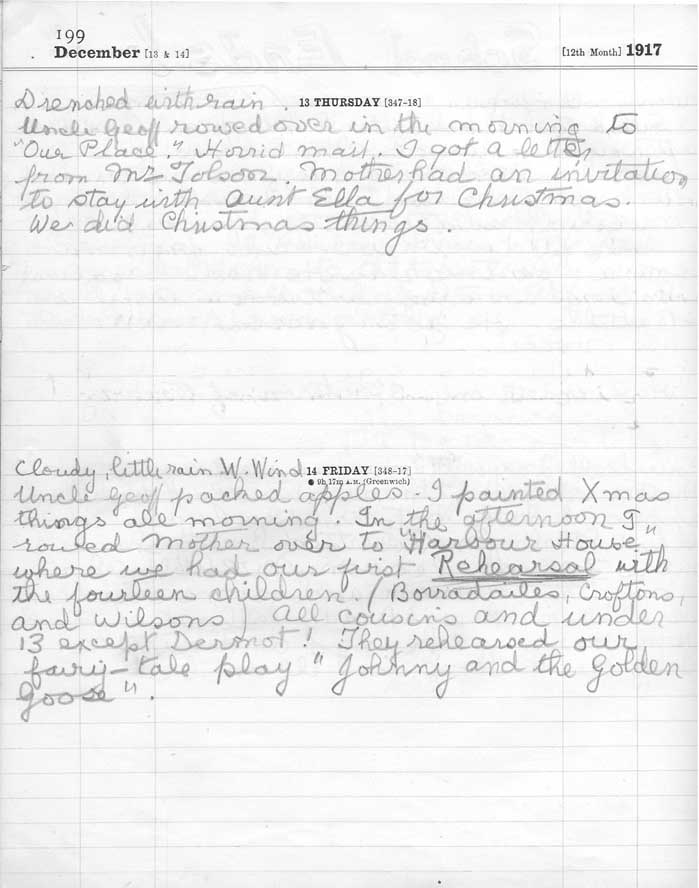 199
December [13 & 14] [12th Month] 1917
Drenched with rain. 13 THURSDAY [347-18]
Uncle Geoff rowed over in the morning to
"Our Place." Horrid mail. I got a letter
from Mr Tolson. Mother had an invitation
to stay with Aunt Ella for Christmas.
We did Christmas things.
Cloudy, little rain W. Wind 14 FRIDAY [348-17]
● 9h. 17m A.M. (Greenwich)
Uncle Geoff packed apples. I painted Xmas
things all morning. In the afternoon I
rowed Mother over to "Harbour House"
where we had our first Rehearsal with
the fourteen children. (Borradailes, Croftons,
and Wilsons) All cousins and under
13 except Dermot! They rehearsed our
fairy-tale play "Johnny and the Golden
Goose".